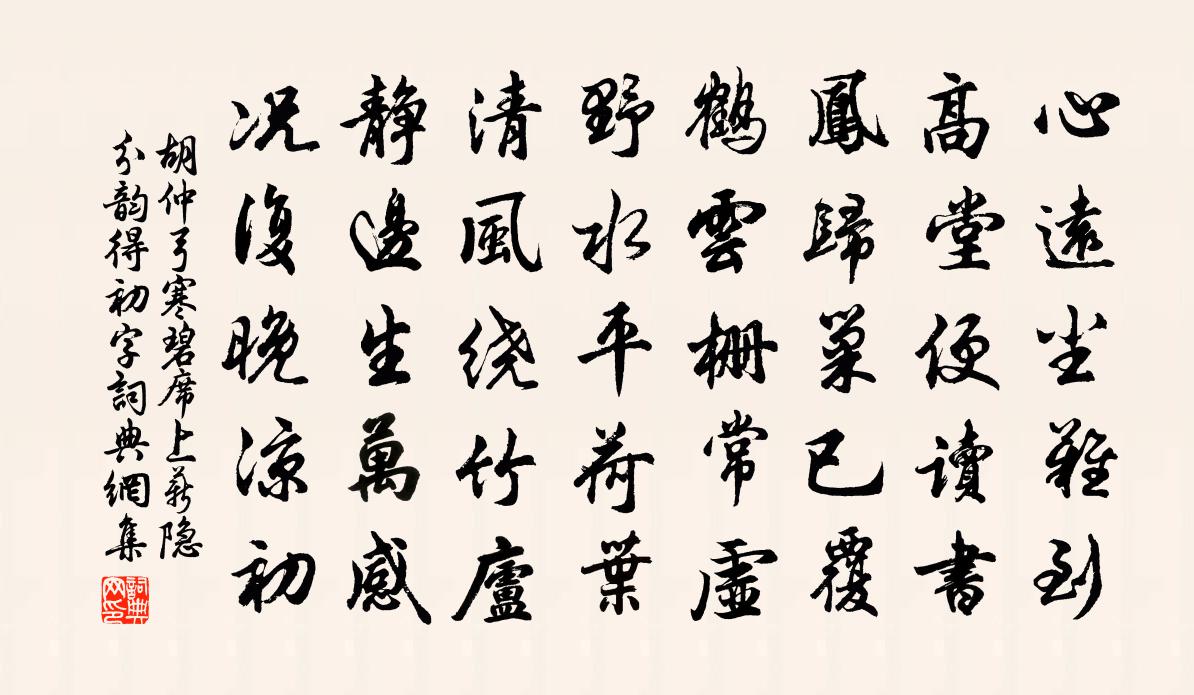 心遠尘難到
高堂便讀書
鳳歸巢已覆
鶴雲栅常虛
野水平荷葉
清風绕竹廬
靜邊生萬感
况復晚涼初
胡仲弓寒碧席上薪隐
分韵得初字詞典網集
詞典
网印